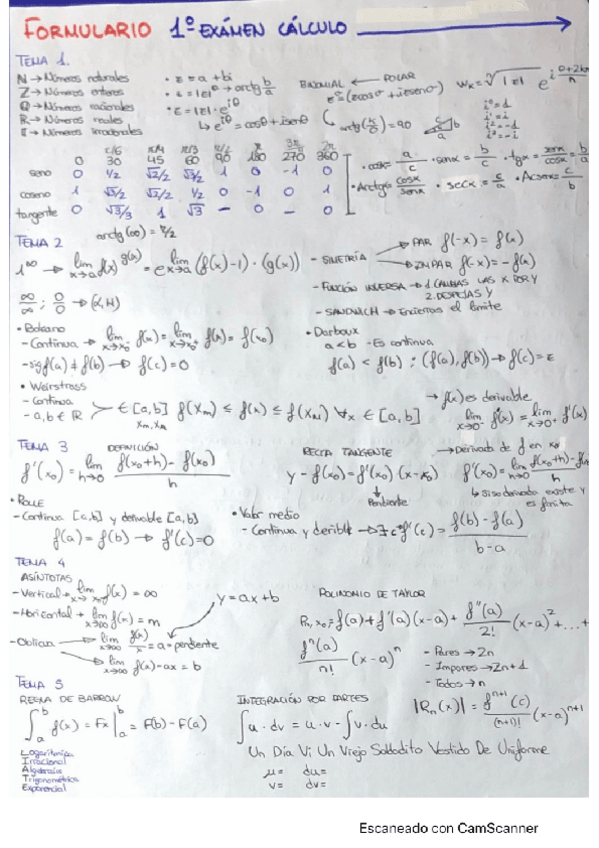 FORMULARIO 1º EXÁMEN CÁLCULO
TEMA 1.
N → Números naturales
Z → Números enteros
Q → Números racionales
R → Números reales
I → Números irracionales
· z = a + bi
· z = |z|ᶿ → arctg b/a
· z = |z|·e^iθ
↳ e^iθ = cosθ + isenθ
BINOMIAL ← POLAR
arctg(b/0) = 90
i⁰ = 1
i¹ = i
i² = -1
i³ = -i
π/6 π/4 π/3 π/2 π 3π/2 2π
0 30 45 60 90 180 270 360
seno 0 1/2 √2/2 √3/2 1 0 -1 0
coseno 1 √3/2 √2/2 1/2 0 -1 0 1
tangente 0 √3/3 1 √3 — 0 — 0
· cosα = a/c · senα = b/c · tgα = senα/cosα = b/a
· Arctgα cosα/senα · secα = c/a · Acosecα c/b
arctg(∞) = π/2
TEMA 2
1^∞ → lim x→a f(x)^g(x) = e^lim x→a (f(x)-1)·(g(x))
∞/∞ ; 0/0 → (L'H)
- SIMETRÍA
→ PAR f(-x) = f(x)
→ IMPAR f(-x) = -f(x)
- FUNCIÓN INVERSA → 1. CAMBIAS LAS X POR Y
2. DESPEJAS Y
- SANDWICH → Encierras el límite
· Bolzano
- Continua → lim x→x₀⁻ f(x) = lim x→x₀⁺ f(x) = f(x₀)
- sig f(a) ≠ f(b) → f(c) = 0
· Darboux
a < b - Es continua
f(a) < f(b) ; (f(a), f(b)) → f(c) = z
· Weirstrass
- Continua
- a, b ∈ R
∈ [a,b] f(xm) ≤ f(x) ≤ f(xM) ∀x ∈ [a,b]
xm, xM
→ f(x) es derivable
lim x→0⁻ f'(x) = lim x→0⁺ f'(x)
TEMA 3
DEFINICIÓN
f'(x₀) = lim h→0 f(x₀+h) - f(x₀) / h
RECTA TANGENTE
y - f(x₀) = f'(x₀)·(x - x₀)
↓
Pendiente
→ Derivada de f en x₀
f'(x₀) = lim h→0 f(x₀+h) - f(x₀) / h
↳ Si su derivada existe y
es finita
· ROLLE
- Continua [a,b] y derivable [a,b)
f(a) = f(b) → f'(c) = 0
· Valor medio
- Continua y derible → ∃ c f'(c) = f(b) - f(a) / b - a
TEMA 4
ASÍNTOTAS
- Vertical → lim x→x₀ f(x) = ∞
- Horizontal → lim x→∞ f(x) = m
- Oblicua
→ lim x→∞ f(x)/x = a → pendiente
→ lim x→∞ f(x) - ax = b
y = ax + b
POLINOMIO DE TAYLOR
Pn, x₀ = f(a) + f'(a)(x-a) + f''(a)/2! (x-a)² + ... +
fⁿ(a)/n! (x-a)ⁿ
- Pares → 2n
- Impares → 2n+1
- Todos → n
TEMA 5
REGLA DE BARROW
∫ₐᵇ f(x) = Fx |ₐᵇ = F(b) - F(a)
INTEGRACIÓN POR PARTES
∫u·dv = u·v - ∫v·du
|Rn(x)| = fⁿ⁺¹(c)/(n+1)! (x-a)ⁿ⁺¹
Un Día Vi Un Viejo Soldadito Vestido De Uniforme
μ= du=
v= dv=
Logarítmica
Irracional
Algebraica
Trigonométrica
Exponencial
Escaneado con CamScanner